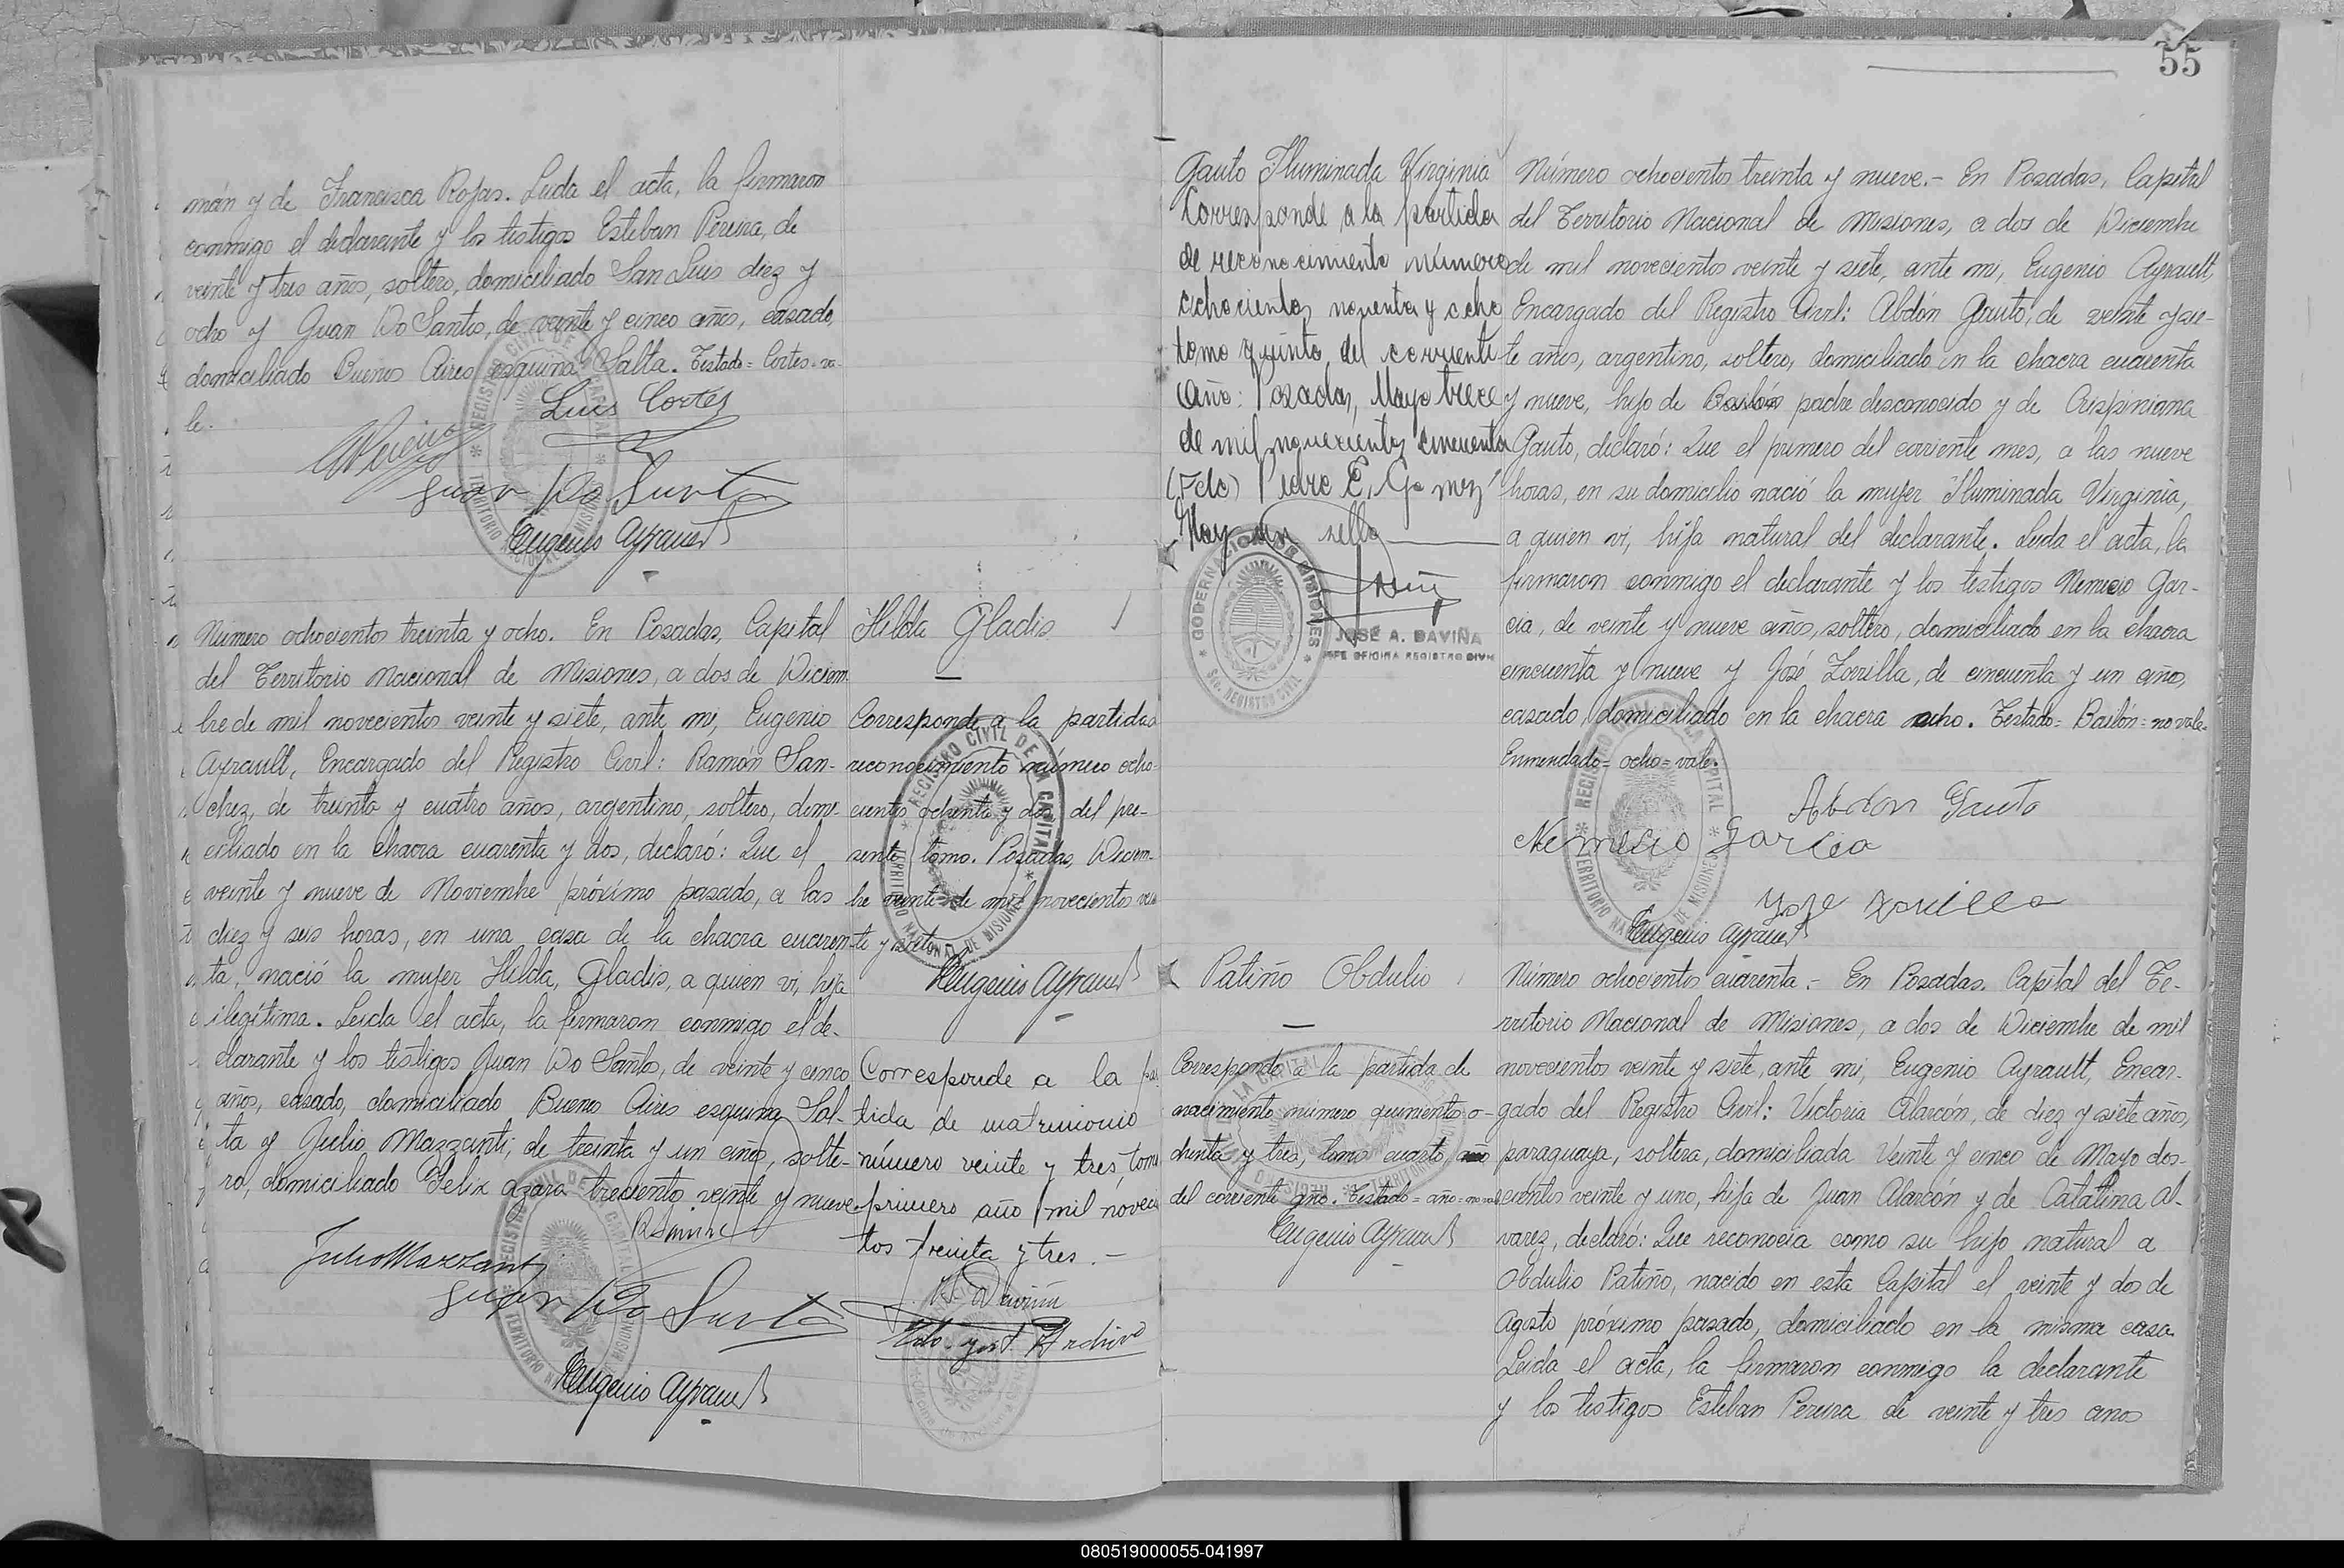 mán y de Francisca Rojas. Leida el acta, la firmaron
conmigo el declarante y los testigos Esteban Pereira, de
veinte y tres años, soltero, domiciliado San Luis diez y
ocho y Juan Do Santos, de veinte y cinco años, casado,
domiciliado Buenos Aires esquina Salta. Testado = Cortes = va-
le.
Luis Cortéz
Juan Do Santo
Eugenio Ayrault
Número ochocientos treinta y ocho. En Posadas, Capital
del Territorio Nacional de Misiones, a dos de Diciem-
bre de mil novecientos veinte y siete, ante mi, Eugenio
Ayrault, Encargado del Registro Civil: Ramón San-
chez, de treinta y cuatro años, argentino, soltero, domi-
ciliado en la chacra cuarenta y dos, declaró: Que el
veinte y nueve de Noviembre próximo pasado, a las
diez y seis horas, en una casa de la chacra cuaren-
ta, nació la mujer Hilda, Gladis, a quien vi, hija
ilegítima. Leida el acta, la firmaron conmigo el de-
clarante y los testigos Juan Do Santo, de veinte y cinco
años, casado, domiciliado Buenos Aires esquina Sal-
ta y Julio Mazzanti, de treinta y un años, solte-
ro, domiciliado Felix Azara trescientos veinte y nueve
Julio Mazzanti
Juan Do Santo
Eugenio Ayrault
Hilda Gladis
Corresponde a la partida
reconocimiento número ocho-
cientos ochenta y dos del pre-
sente tomo. Posadas, Diciem-
bre veinte de mil novecientos vein
te y siete
Eugenio Ayrault
Corresponde a la par
tida de matrimonio
número veinte y tres, tomo
primero año mil novecien
tos treinta y tres. -
Archivo
55
Gauto Iluminada Virginia
Corresponde a la partida
de reconocimiento número
ochocientos noventa y ocho
tomo quinto del corriente
año: Posadas, Mayo trece
de mil novecientos cincuenta
(Fdo) Pedro E. Gomez
Hay un sello
GOBERNACION DE MISIONES
REGISTRO CIVIL
JOSÉ A. DAVIÑA
JEFE OFICINA REGISTRO CIVIL
Patiño Obdulio
Corresponde a la partida de
nacimiento número quinientos o-
chenta y tres, tomo cuarto, año
del corriente año. Testado = año = no vale
Eugenio Ayrault
Número ochocientos treinta y nueve.- En Posadas, Capital
del Territorio Nacional de Misiones, a dos de Diciembre
de mil novecientos veinte y siete, ante mi, Eugenio Ayrault,
Encargado del Registro Civil: Abdón Gauto, de veinte y sie-
te años, argentino, soltero, domiciliado en la chacra cuarenta
y nueve, hijo de Bailón padre desconocido y de Crispiniana
Gauto, declaró: Que el primero del corriente mes, a las nueve
horas, en su domicilio nació la mujer Iluminada Virginia,
a quien vi, hija natural del declarante. Leida el acta, la
firmaron conmigo el declarante y los testigos Nemecio Gar-
cia, de veinte y nueve años, soltero, domiciliado en la chacra
cincuenta y nueve y José Zorilla, de cincuenta y un años,
casado, domiciliado en la chacra ocho. Testado = Bailón = no vale-
Enmendado = ocho = vale.
Abdon Gauto
Nemecio Garcia
Jose Zorilla
Eugenio Ayrault
Número ochocientos cuarenta.- En Posadas, Capital del Te-
rritorio Nacional de Misiones, a dos de Diciembre de mil
novecientos veinte y siete, ante mi, Eugenio Ayrault, Encar-
gado del Registro Civil: Victoria Alarcón, de diez y siete años,
paraguaya, soltera, domiciliada Veinte y cinco de Mayo dos-
cientos veinte y uno, hija de Juan Alarcón y de Catalina Al-
varez, declaró: Que reconocia como su hijo natural a
Obdulio Patiño, nacido en esta Capital el veinte y dos de
Agosto próximo pasado, domiciliado en la misma casa
Leida el acta, la firmaron conmigo la declarante
y los testigos Esteban Pereira de veinte y tres anos
080519000055-041997